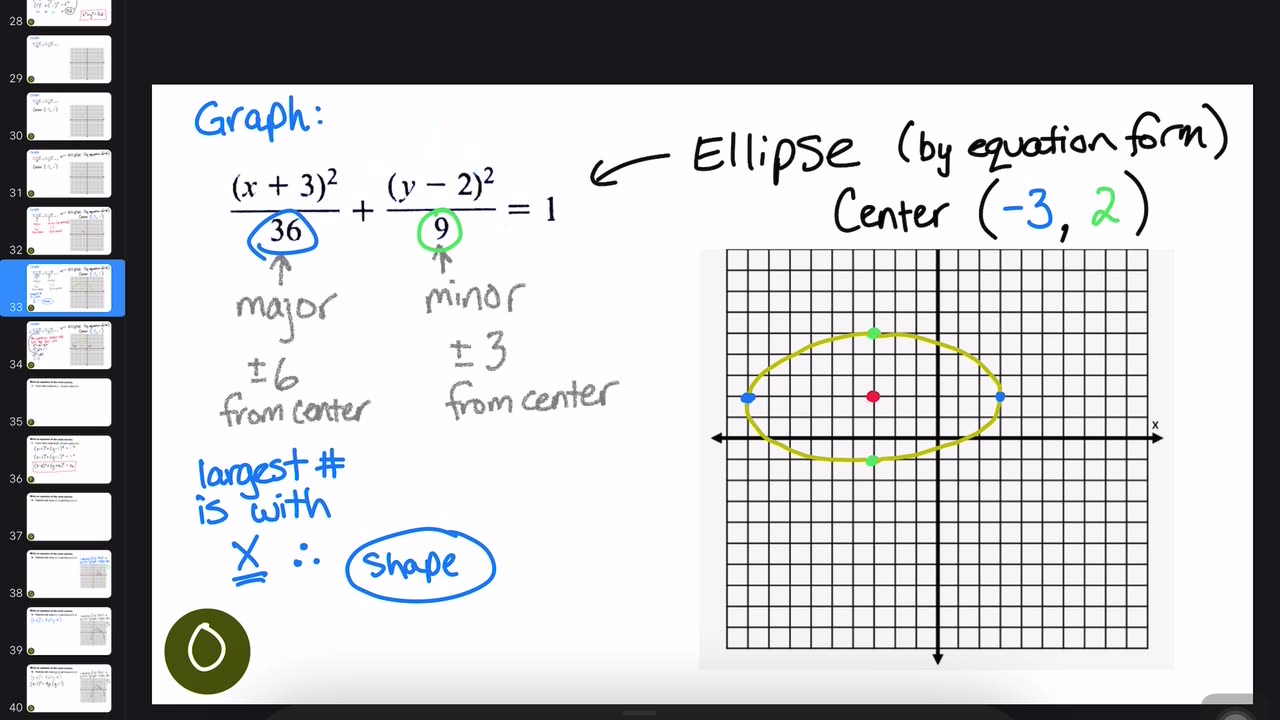 28
29
30
31
32
33
34
35
36
37
38
39
40
Graph:
(x + 3)² / 36 + (y − 2)² / 9 = 1
← Ellipse (by equation form)
Center (-3, 2)
↑ ↑
major minor
±6 ± 3
from center from center
largest #
is with
X ∴ shape
x
O